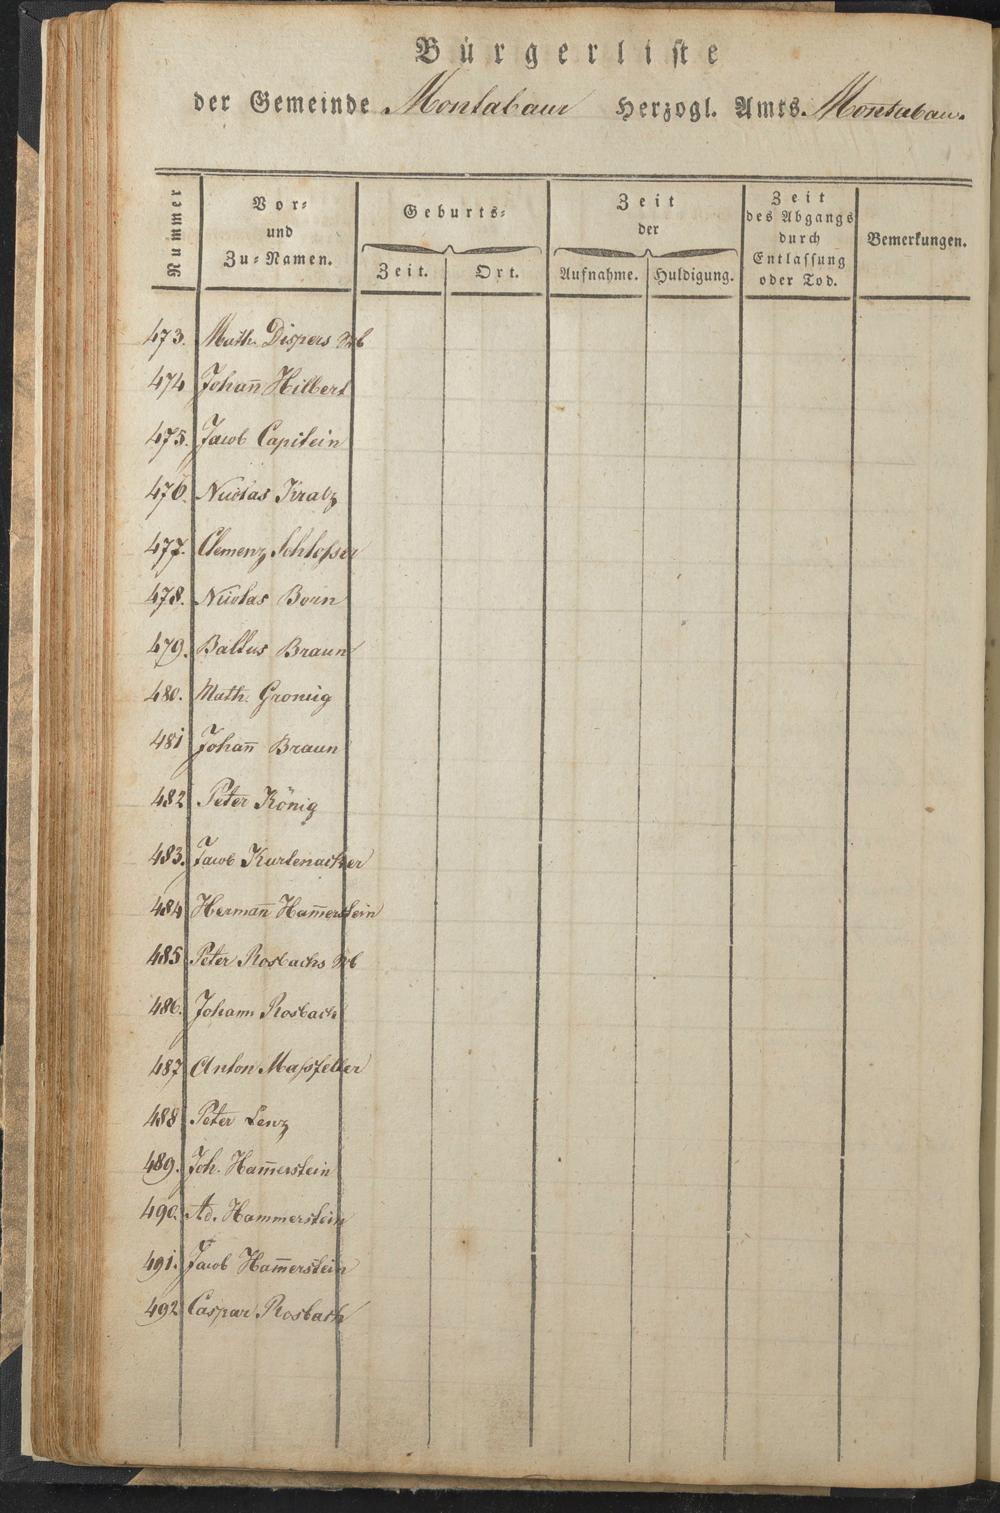 Bürgerliste
der Gemeinde Montabaur Herzogl. Amts Montabau.
Nummer
Vor- und Zu-Namen.
Geburts-
Zeit. Ort.
Zeit der
Aufnahme. Huldigung.
Zeit des Abgangs durch Entlassung oder Tod.
Bemerkungen.
473. Math. Dispers
474 Johañ Hilbert
475. Jacob Capitein
476. Nicolas Kratz
477. Clemenz Schloßer
478. Nicolas Born
479. Baltus Braun
480. Math. Gronnig
481 Johañ Braun
482 Peter König
483. Jacob Kurtenacker
484 Hermañ Ham̄erstein
485 Peter Rosbachs
486. Johann Rosbach
487 Anton Maßfeller
488 Peter Lenz
489. Joh. Ham̄erstein
490. Ad. Hammerstein
491. Jacob Ham̄erstein
492 Caspar Rosbach